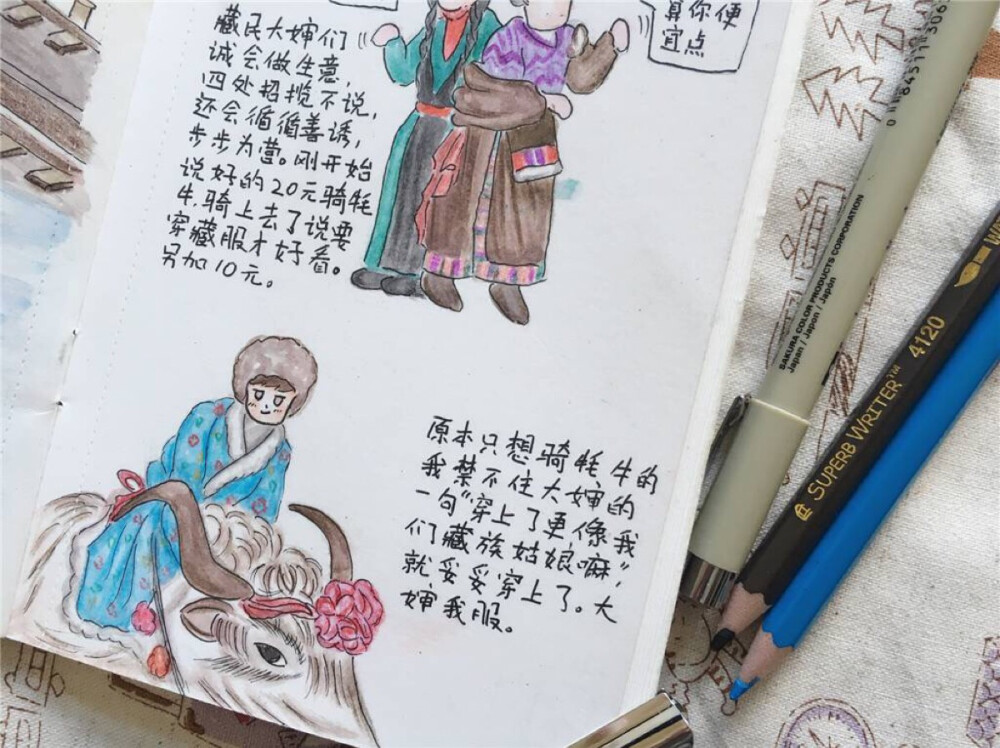 藏民大婶们
诚会做生意，
四处招揽不说，
还会循循善诱，
步步为营。刚开始
说好的20元骑牦
牛，骑上去了说要
穿藏服才好看。
另加10元。
算你便
宜点
原本只想骑牦牛的
我禁不住大婶的
一句“穿上了更像我
们藏族姑娘嘛”，
就妥妥穿上了。大
婶我服。
SAKURA COLOR PRODUCTS CORPORATION
Japan / Japon / Japón
SUPERB WRITER™ 4120